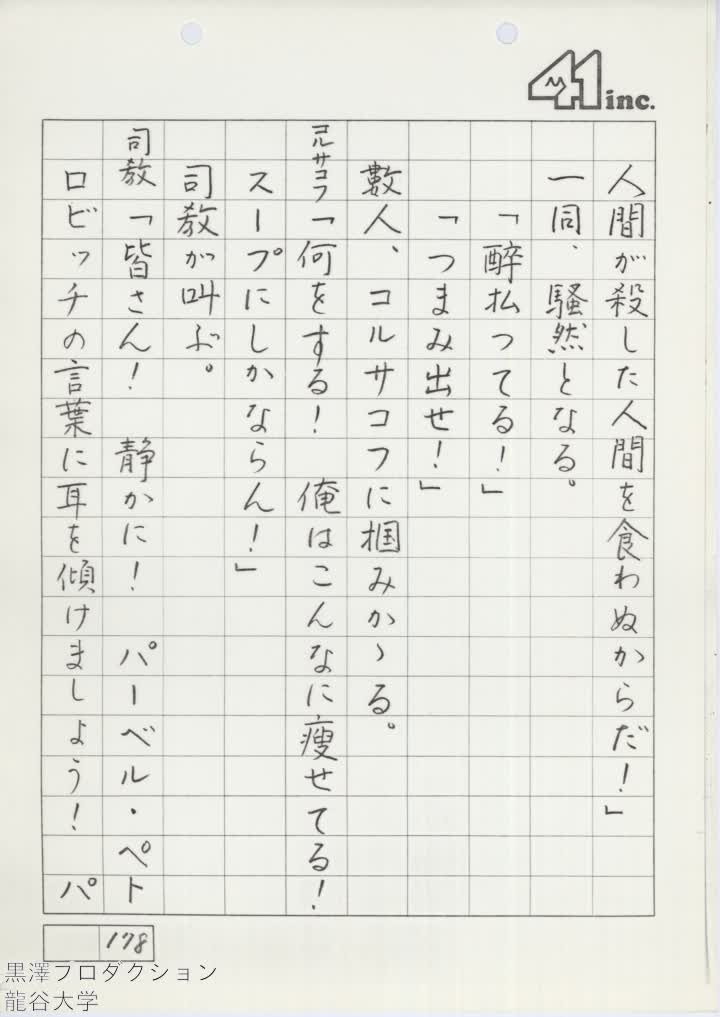 41 inc.
人間が殺した人間を食わぬからだ！」
一同、騒然となる。
「醉払ってる！」
「つまみ出せ！」
數人、コルサコフに掴みかゝる。
コルサコフ「何をする！　俺はこんなに痩せてる！
スープにしかならん！」
司教が叫ぶ。
司教「皆さん！　静かに！　パーベル・ペト
ロビッチの言葉に耳を傾けましょう！　パ
178
黒澤プロダクション
龍谷大学